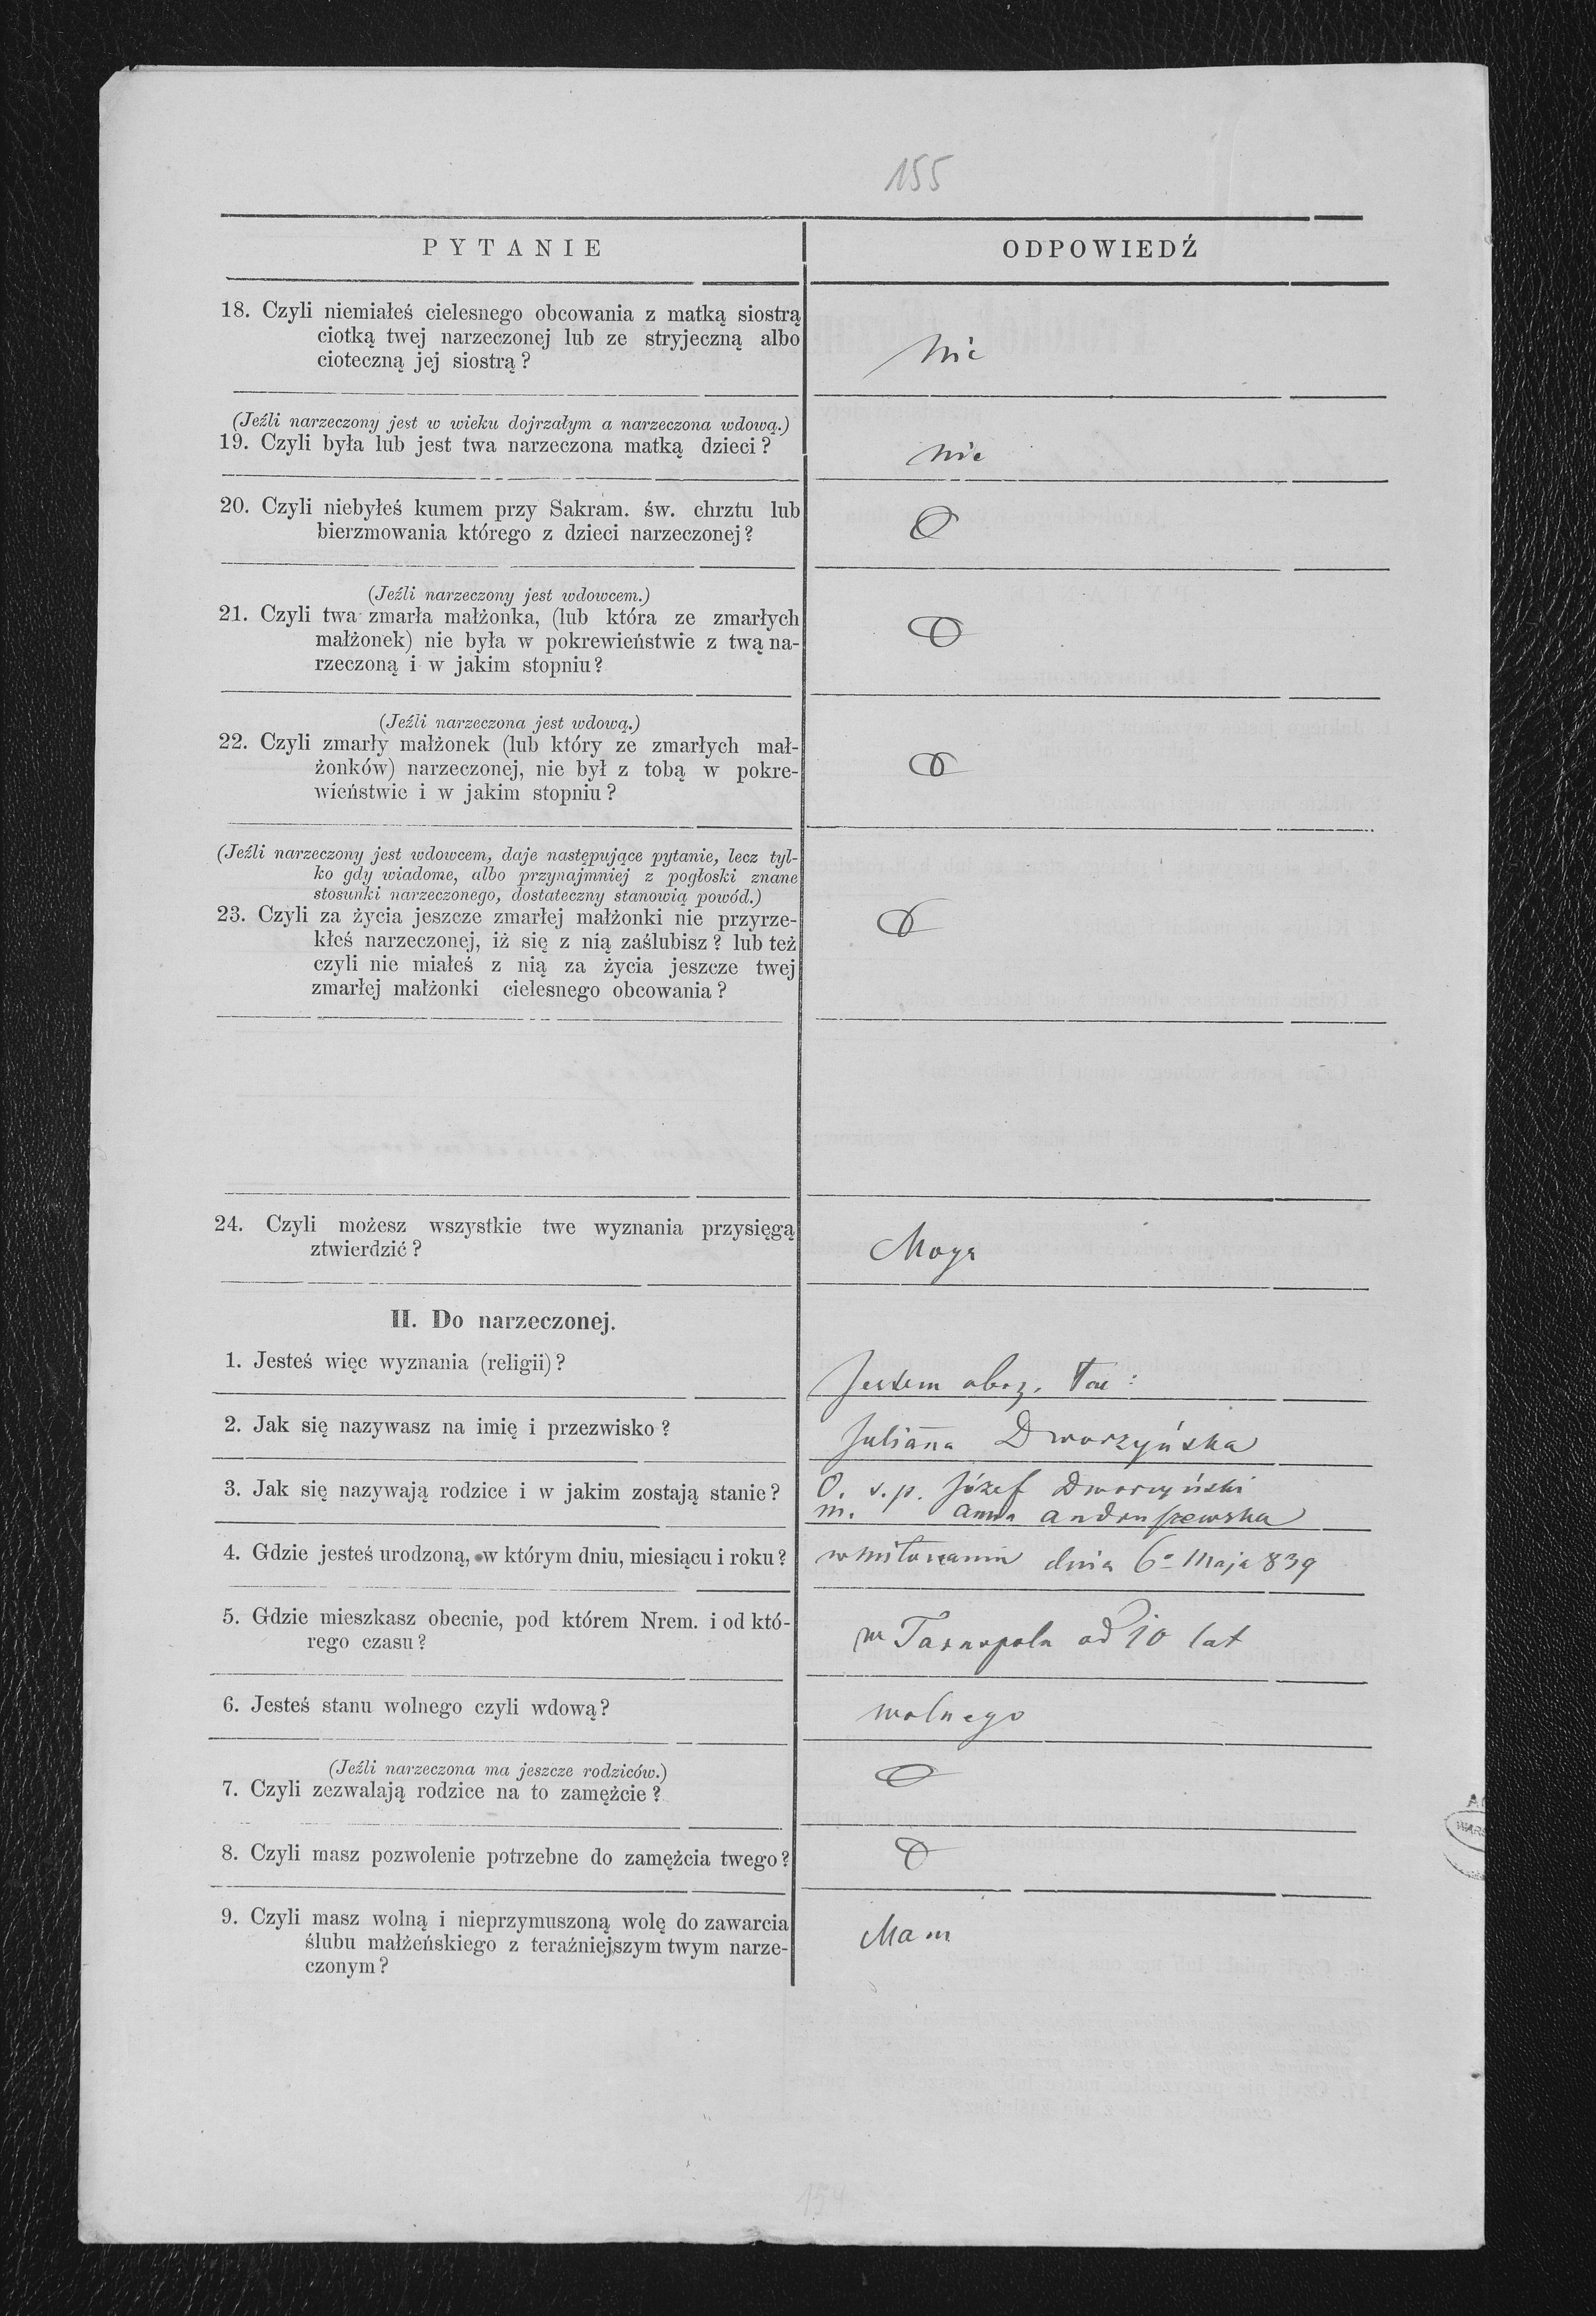 155
PYTANIE
ODPOWIEDŹ
18. Czyli niemiałeś cielesnego obcowania z matką siostrą
ciotką twej narzeczonej lub ze stryjeczną albo
cioteczną jej siostrą?
Nie
(Jeźli narzeczony jest w wieku dojrzałym a narzeczona wdową.)
19. Czyli była lub jest twa narzeczona matką dzieci?
nie
20. Czyli niebyłeś kumem przy Sakram. św. chrztu lub
bierzmowania którego z dzieci narzeczonej?
(Jeźli narzeczony jest wdowcem.)
21. Czyli twa zmarła małżonka, (lub która ze zmarłych
małżonek) nie była w pokrewieństwie z twą na-
rzeczoną i w jakim stopniu?
(Jeźli narzeczona jest wdową.)
22. Czyli zmarły małżonek (lub który ze zmarłych mał-
żonków) narzeczonej, nie był z tobą w pokre-
wieństwie i w jakim stopniu?
(Jeźli narzeczony jest wdowcem, daje następujące pytanie, lecz tyl-
ko gdy wiadome, albo przynajmniej z pogłoski znane
stosunki narzeczonego, dostateczny stanowią powód.)
23. Czyli za życia jeszcze zmarłej małżonki nie przyrze-
kłeś narzeczonej, iż się z nią zaślubisz? lub też
czyli nie miałeś z nią za życia jeszcze twej
zmarłej małżonki cielesnego obcowania?
24. Czyli możesz wszystkie twe wyznania przysięgą
ztwierdzić?
Mogę
II. Do narzeczonej.
1. Jesteś więc wyznania (religii)?
Jestem obrz. łac:
2. Jak się nazywasz na imię i przezwisko?
Julianna Dworzyńska
3. Jak się nazywają rodzice i w jakim zostają stanie?
O. s. p. Józef Dworzyński
m. Anna Andruszewska
4. Gdzie jesteś urodzoną, w którym dniu, miesiącu i roku?
dnia 6º Maja 839
5. Gdzie mieszkasz obecnie, pod którem Nrem. i od któ-
rego czasu?
w Tarnopolu od 10 lat
6. Jesteś stanu wolnego czyli wdową?
wolnego
(Jeźli narzeczona ma jeszcze rodziców.)
7. Czyli zezwalają rodzice na to zamężcie?
8. Czyli masz pozwolenie potrzebne do zamężcia twego?
9. Czyli masz wolną i nieprzymuszoną wolę do zawarcia
ślubu małżeńskiego z teraźniejszym twym narze-
czonym?
Mam